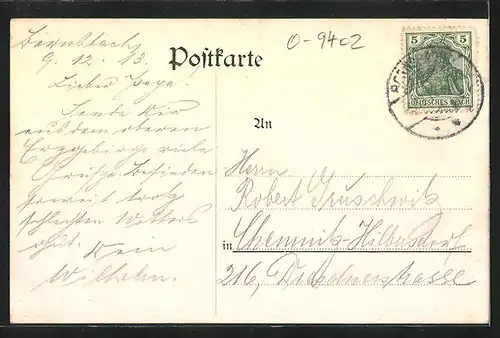 Bärnsbach,
9. 12. 13.
Lieber Pepe!
Sende Dir
aus dem oberen
Erzgebirge viele
Grüße. Befinden
soweit trotz
schlechten Wetters
gut. Dein
Wilhelm.
Postkarte
0-9402
5
DEUTSCHES REICH
An
Herrn
Robert Gruschwitz
in Chemnitz-Hilbersdorf
216, Dresdnerstrasse